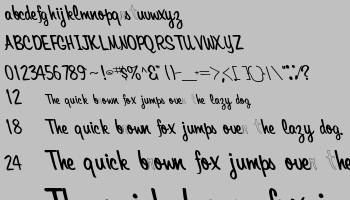 abcdefghijklmnopqrstuvwxyz
ABCDEFGHIJKLMNOPQRSTUVWXYZ
0123456789
12 The quick brown fox jumps over the lazy dog
18 The quick brown fox jumps over the lazy dog.
24 The quick brown fox jumps over the